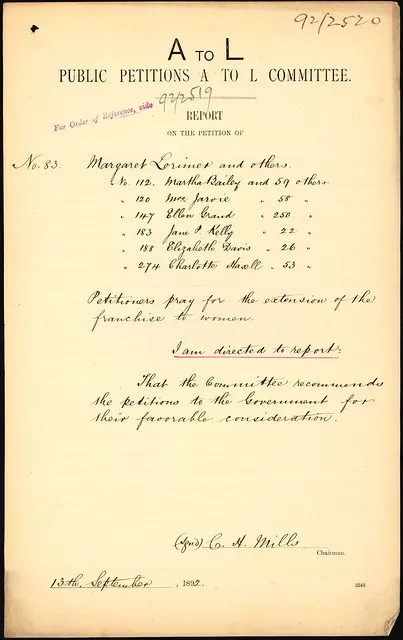 92/2520
A TO L
PUBLIC PETITIONS A TO L COMMITTEE.
92/2519
For Order of Reference, vide
REPORT
ON THE PETITION OF
No. 83. Margaret Lorimer and others.
No. 112. Martha Bailey and 59 others
" 120 Mrs Jarvie " 58 "
" 147 Ellen Grand " 250 "
" 183 Jane P. Kelly " 22 "
" 188 Elizabeth Davis " 26 "
" 274 Charlotte Haxell " 53 "
Petitioners pray for the extension of the
franchise to women.
I am directed to report:
That the Committee recommends
the petitions to the Government for
their favorable consideration.
(sgnd) C. H. Mills
Chairman.
13th. September, 1892.